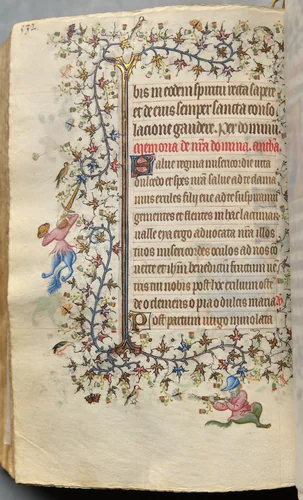 bis in eodem spiritu recta sapere
et de eius semper sancta conso
lacione gaudere. Per dominum
memoria de nra domina. antha
Salue regina misericordie vita
dulcedo et spes nra salue ad te clama
mus exules filij eue ad te suspiramus
gementes et flentes in hac lacrimar
valle eya ergo aduocata nra illos
tuos misericordes oculos ad nos co
uerte et ihm benedictu fructum ve
tris tui nobis post hoc exilium oste
de o clemens o pia o dulcis maria
Post partum uirgo inuiolata